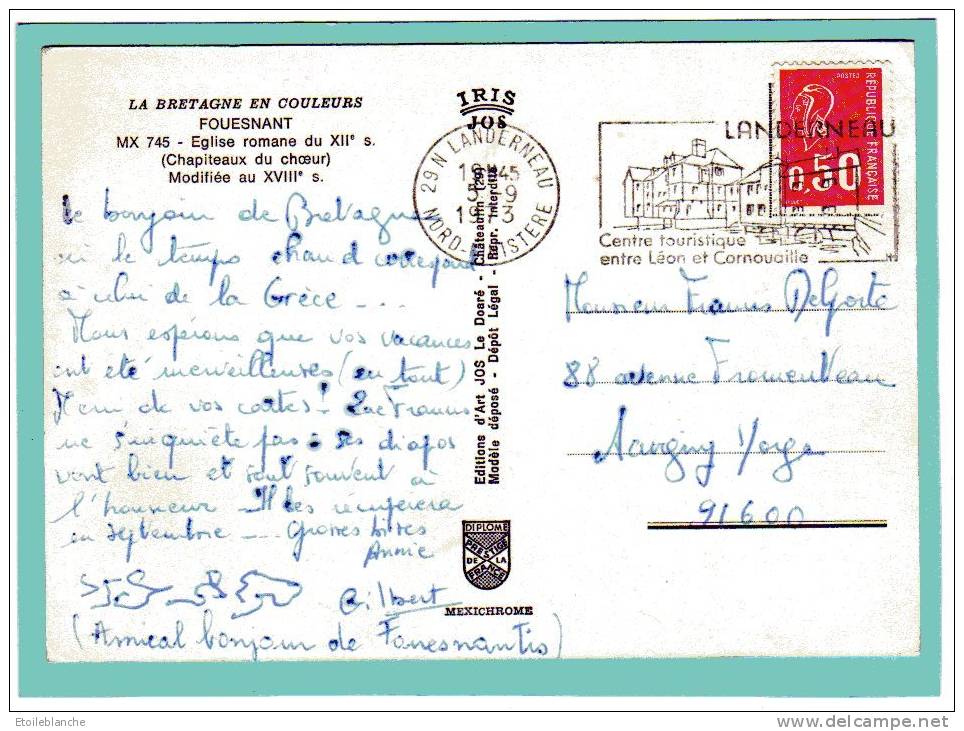 LA BRETAGNE EN COULEURS
FOUESNANT
MX 745 - Eglise romane du XIIe s.
(Chapiteaux du chœur)
Modifiée au XVIIIe s.
IRIS
JOS
29N LANDERNEAU
45
9
1973
NORD-FINISTERE
LANDERNEAU
Centre touristique
entre Léon et Cornouaille
POSTES
RÉPUBLIQUE FRANÇAISE
0,50
Le bonjour de Bretagne
où le temps chaud correspond
à celui de la Grèce ...
Nous espérons que vos vacances
ont été merveilleuses (en tout)
Merci de vos cartes ! Que Francis
ne s'inquiète pas : ses diapos
vont bien et sont souvent à
l'honneur - Il les récupérera
en septembre ... Grosses bises
Annie
Gilbert
(Amical bonjour de Fouesnantis)
Editions d'Art JOS Le Doaré - Châteaulin (29)
Modèle déposé - Dépôt Légal - Repr. Interdite
DIPLOME
PRESTIGE
DE LA
FRANCE
MEXICHROME
Monsieur Francis Delporte
88 avenue Fromenteau
Savigny s/orge
91600
Etoileblanche
www.delcampe.net